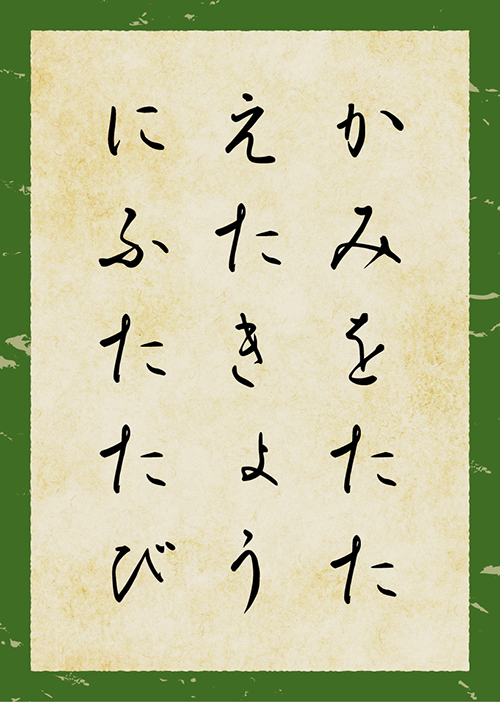 かみをたた
えたきょう
にふたたび